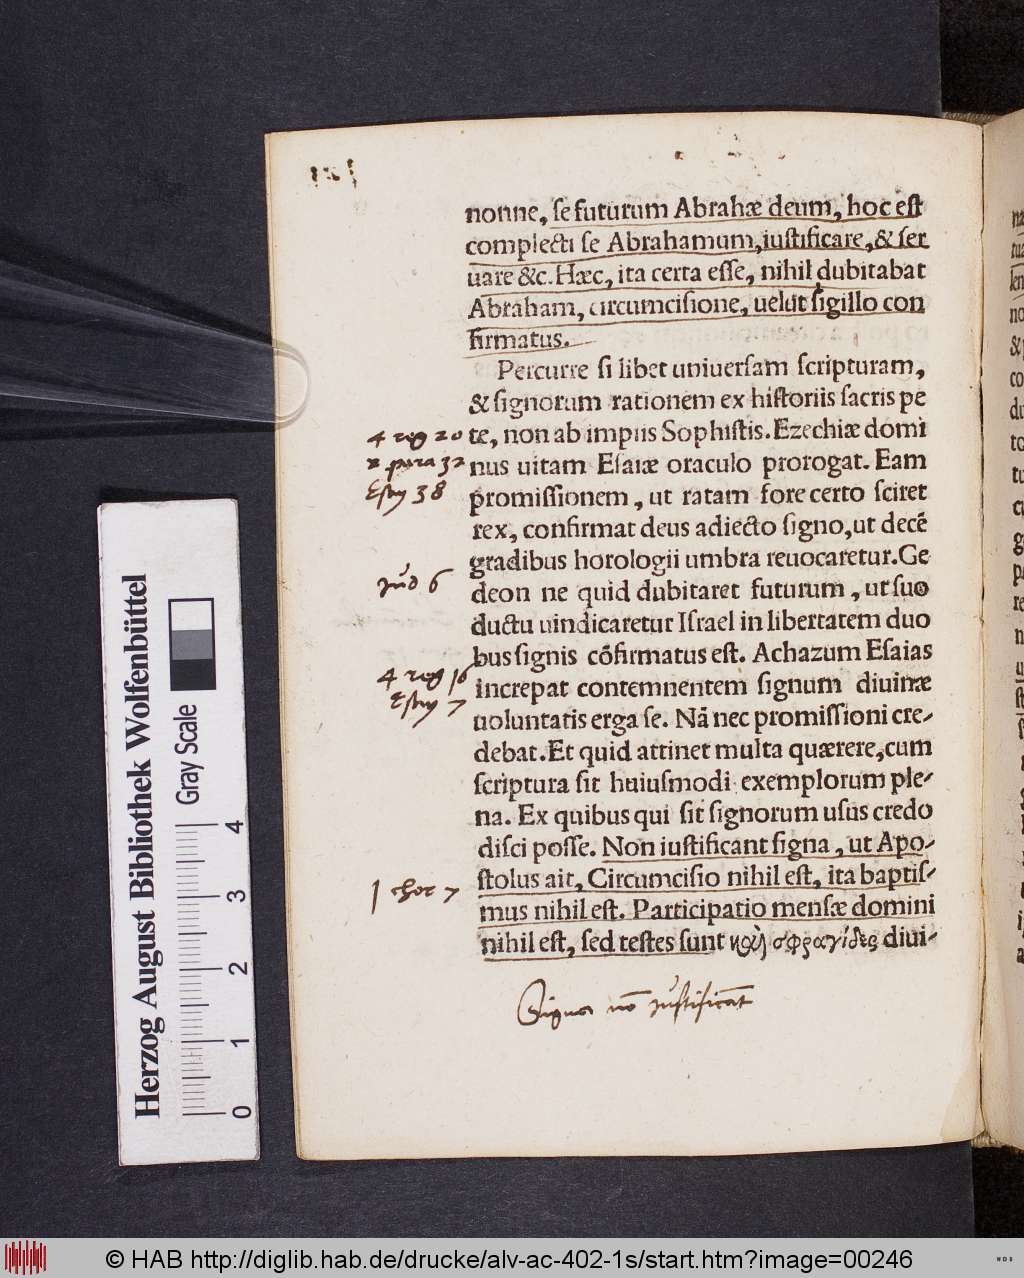 nonne, se futurum Abrahæ deum, hoc est
complecti se Abrahamum, iustificare, & ser
uare &c. Hæc, ita certa esse, nihil dubitabat
Abraham, circumcisione, uelut sigillo con
firmatus.
Percurre si libet uniuersam scripturam,
& signorum rationem ex historiis sacris pe
4 reg 20
te, non ab impiis Sophistis. Ezechiæ domi
2 para 32
nus uitam Esaiæ oraculo prorogat. Eam
Esay 38
promissionem, ut ratam fore certo sciret
rex, confirmat deus adiecto signo, ut decẽ
gradibus horologii umbra reuocaretur. Ge
Jud 6
deon ne quid dubitaret futurum, ut suo
ductu uindicaretur Israel in libertatem duo
bus signis cõfirmatus est. Achazum Esaias
4 reg 16
increpat contemnentem signum diuinæ
Esay 7
uoluntatis erga se. Nã nec promissioni cre-
debat. Et quid attinet multa quærere, cum
scriptura sit huiusmodi exemplorum ple-
na. Ex quibus qui sit signorum usus credo
disci posse. Non iustificant signa, ut Apo-
1 chor 7
stolus ait, Circumcisio nihil est, ita baptis-
mus nihil est. Participatio mensæ domini
nihil est, sed testes sunt καὶ σφραγίδες diui-
Signa nõ iustificãt
Herzog August Bibliothek Wolfenbüttel
Gray Scale
0 1 2 3 4
© HAB http://diglib.hab.de/drucke/alv-ac-402-1s/start.htm?image=00246